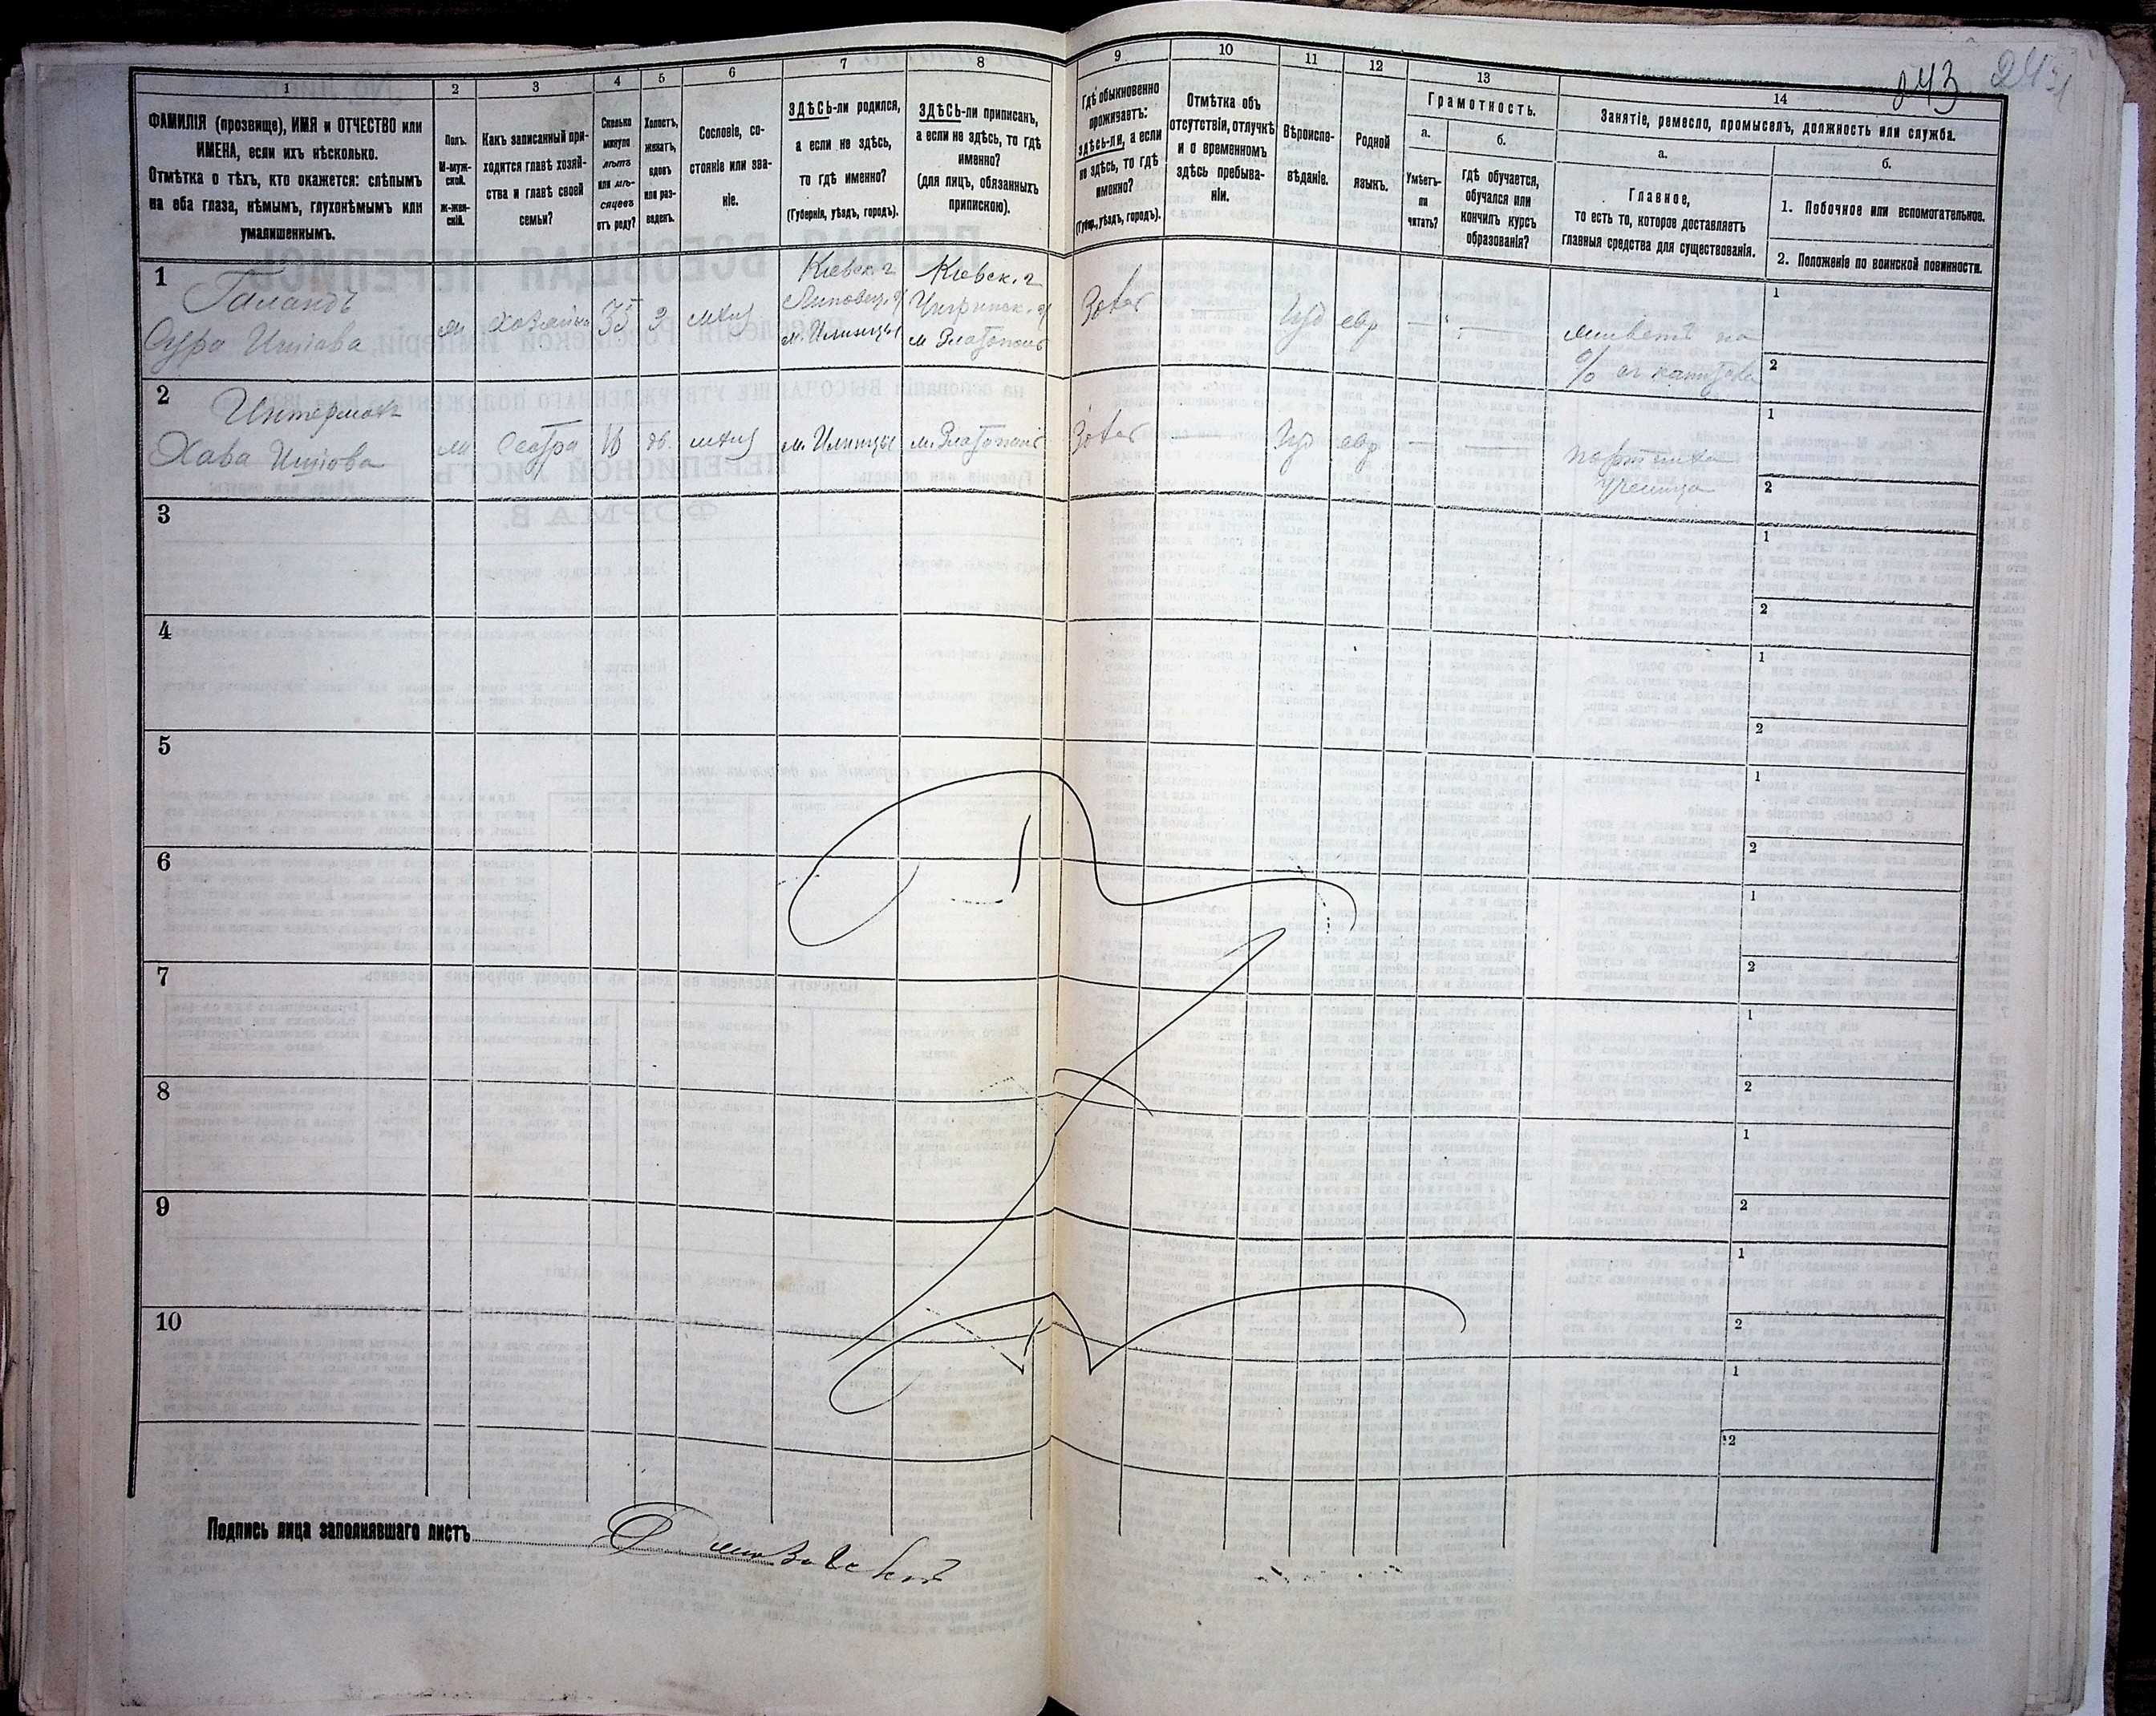 243 243
1 2 3 4 5 6 7 8 9 10 11 12 13 14
ФАМИЛІЯ (прозвище), ИМЯ и ОТЧЕСТВО или
ИМЕНА, если ихъ нѣсколько.
Отмѣтка о тѣхъ, кто окажется: слѣпымъ
на оба глаза, нѣмымъ, глухонѣмымъ или
умалишеннымъ.
Полъ.
М-муж-
ской.
Ж-жен-
скій.
Какъ записанный при-
ходится главѣ хозяй-
ства и главѣ своей
семьи?
Сколько
минуло
лѣтъ
или мѣ-
сяцевъ
отъ роду?
Холостъ,
женатъ,
вдовъ
или раз-
веденъ.
Сословіе, со-
стояніе или зва-
ніе.
ЗДѢСЬ-ли родился,
а если не здѣсь,
то гдѣ именно?
(Губернія, уѣздъ, городъ).
ЗДѢСЬ-ли приписанъ,
а если не здѣсь, то гдѣ
именно?
(для лицъ, обязанныхъ
припискою).
Гдѣ обыкновенно
проживаетъ:
здѣсь-ли, а если
не здѣсь, то гдѣ
именно?
(Губер., уѣздъ, городъ).
Отмѣтка объ
отсутствіи, отлучкѣ
и о временномъ
здѣсь пребыва-
ніи.
Вѣроиспо-
вѣданіе.
Родной
языкъ.
Грамотность.
а.
Умѣетъ-
ли
читать?
б.
гдѣ обучается,
обучался или
кончилъ курсъ
образованія?
Занятіе, ремесло, промыселъ, должность или служба.
а.
Главное,
то есть то, которое доставляетъ
главныя средства для существованія.
б.
1. Побочное или вспомогательное.
2. Положеніе по воинской повинности.
1
Галандъ
Сура Иціова
хозяйка 35 мѣщ
Кіевск. г
Липовец. у
м. Илинцы
Кіевск. г
Чигринск. у
м Златополь
іуд евр — —
живетъ на
% съ капитала
1
2
2
Интерматъ
Хава Иціова
сестра 16 дв. мѣщ м. Илинцы м. Златополь
— іуд евр — —
портниха
ученица
1
2
3
1
2
4
1
2
5
1
2
6
1
2
7
1
2
8
1
2
9
1
2
10
1
2
Подпись лица заполнявшаго листъ